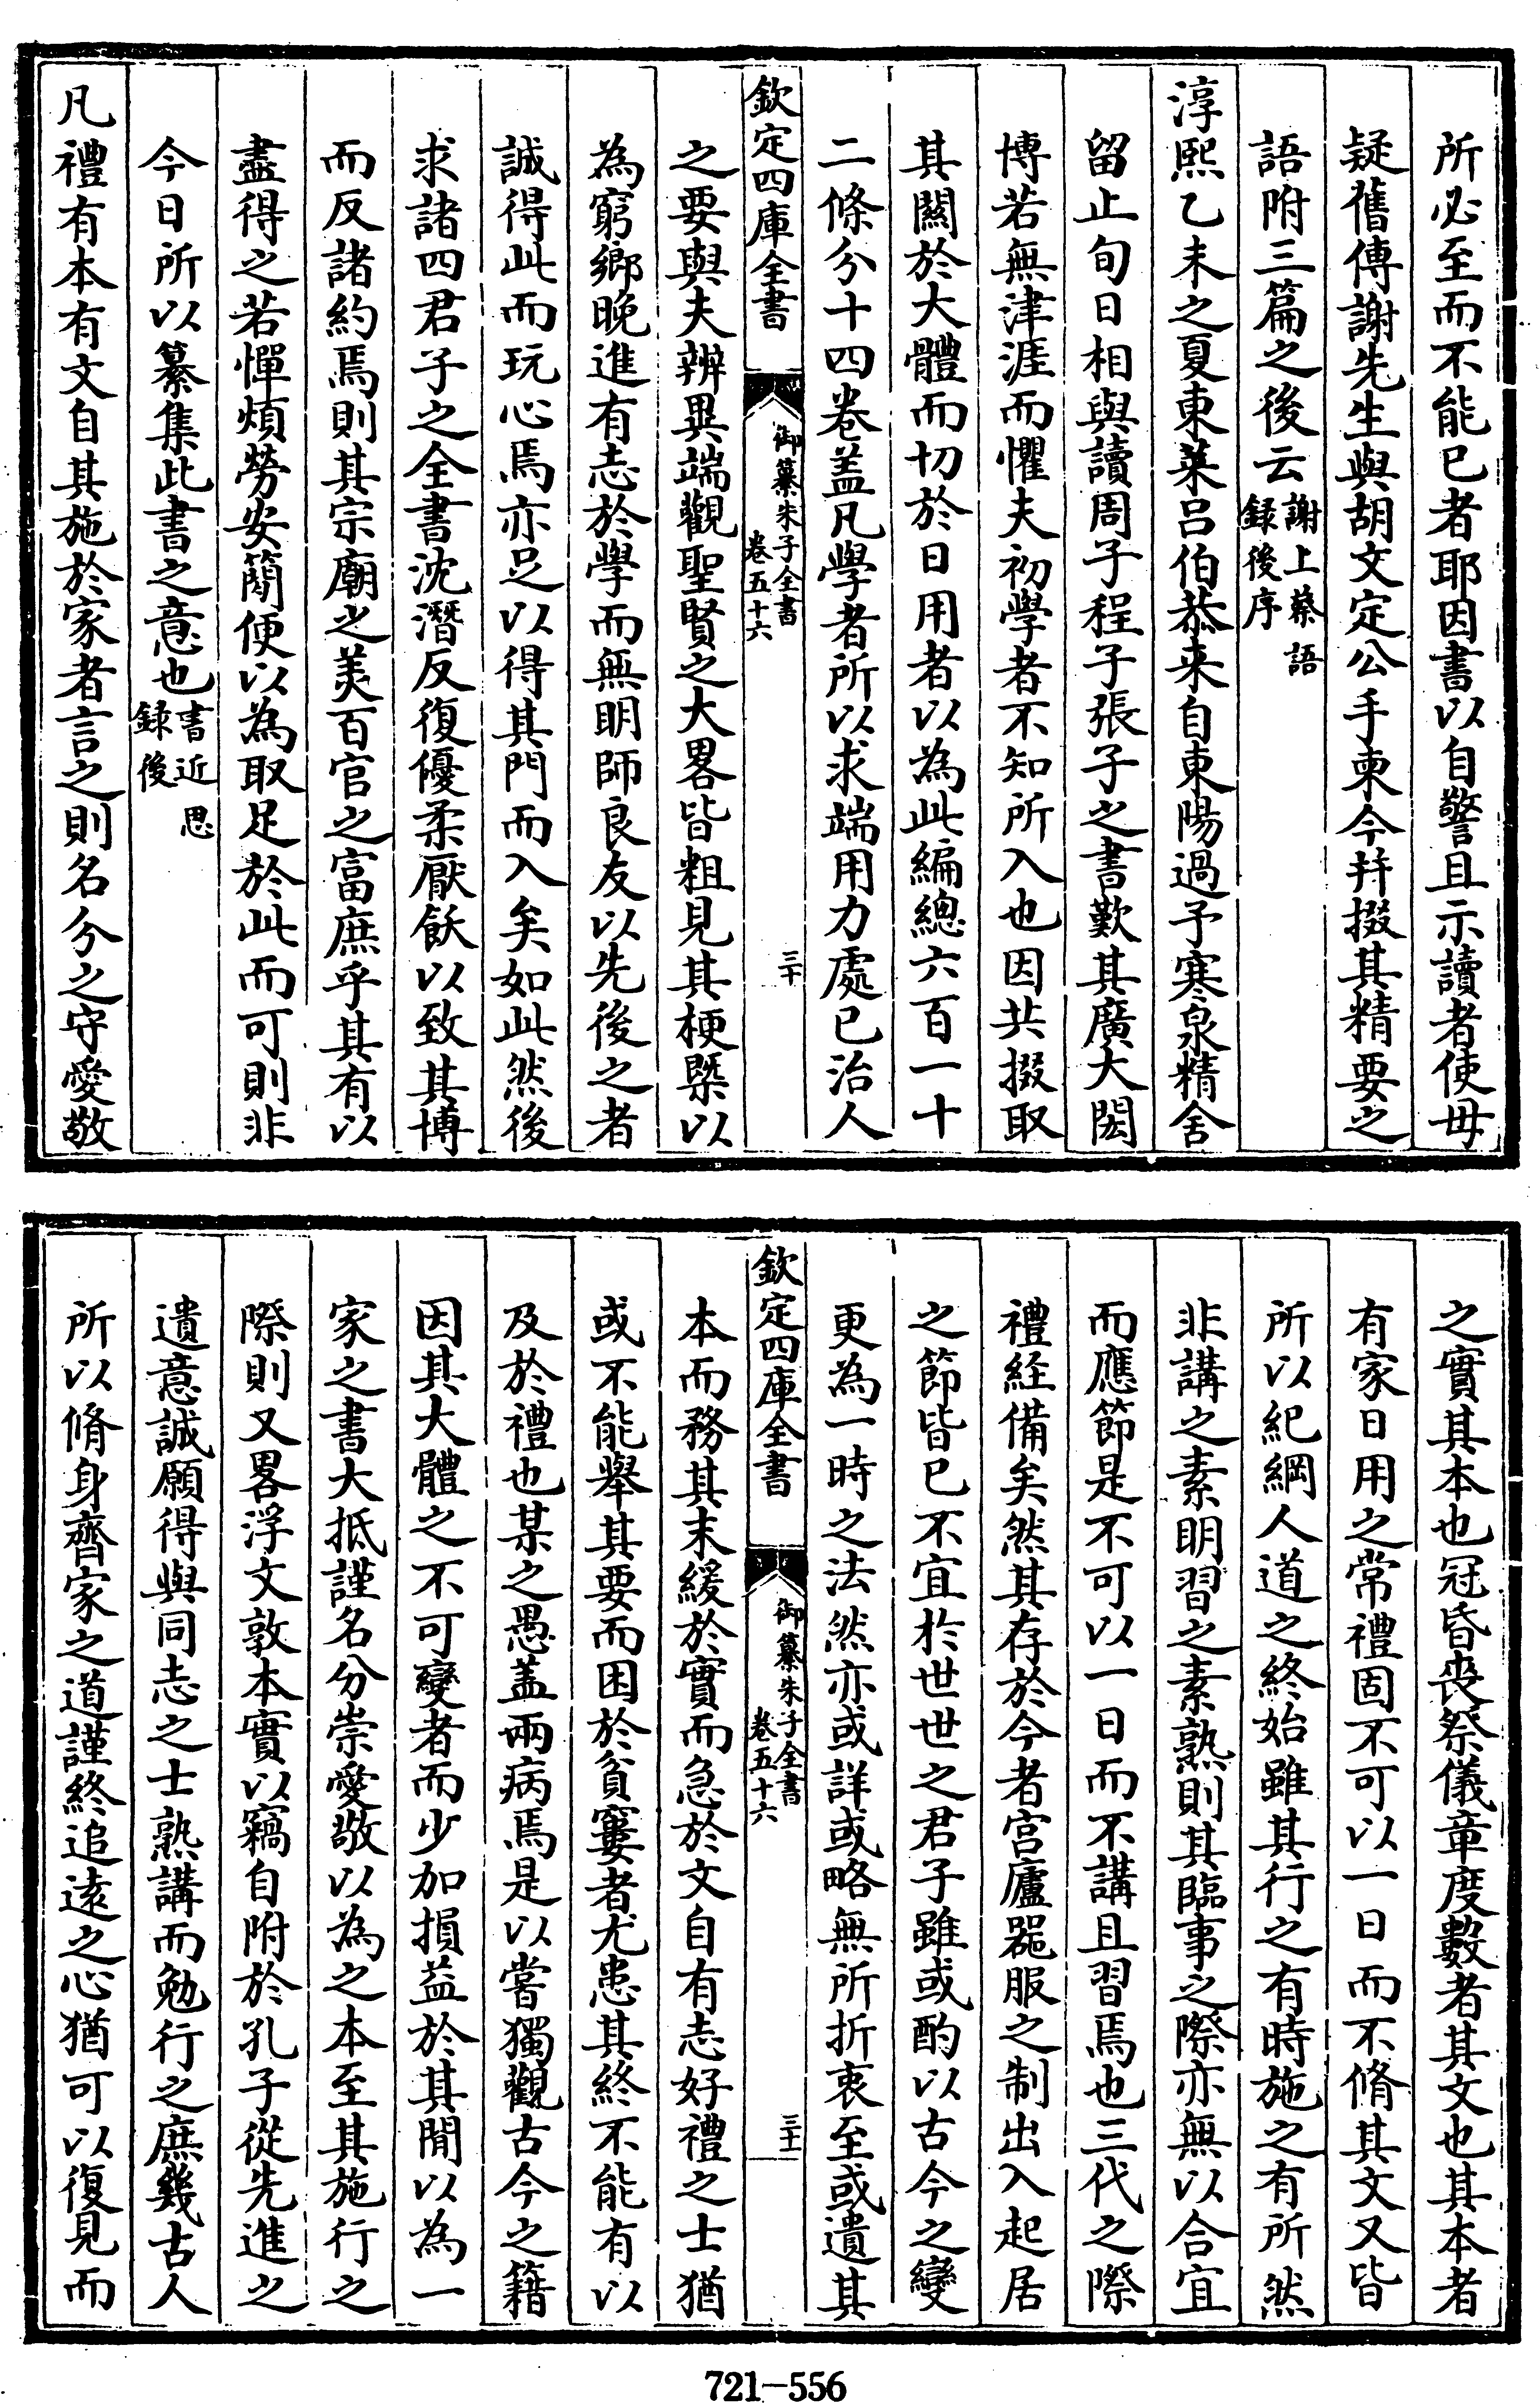 所必至而不能已者耶因書以自警且示讀者使毋
疑舊傳謝先生與胡文定公手柬今幷掇其精要之
語附三篇之後云謝上蔡語録後序
淳熙乙未之夏東萊吕伯恭来自東陽過予寒泉精舍
留止旬日相與讀周子程子張子之書歎其廣大閎
博若無津涯而懼夫初學者不知所入也因共掇取
其關於大體而切於日用者以為此編總六百一十
二條分十四卷盖凡學者所以求端用力處已治人
欽定四庫全書
御纂朱子全書
卷五十六
三十
之要與夫辨異端觀聖賢之大畧皆粗見其梗槩以
為窮鄉晚進有志於學而無明師良友以先後之者
誠得此而玩心焉亦足以得其門而入矣如此然後
求諸四君子之全書沈潛反復優柔厭飫以致其博
而反諸約焉則其宗廟之美百官之富庶乎其有以
盡得之若憚煩勞安簡便以為取足於此而可則非
今日所以纂集此書之意也書近思録後
凡禮有本有文自其施於家者言之則名分之守愛敬
之實其本也冠昏喪祭儀章度數者其文也其本者
有家日用之常禮固不可以一日而不脩其文又皆
所以紀綱人道之終始雖其行之有時施之有所然
非講之素明習之素熟則其臨事之際亦無以合宜
而應節是不可以一日而不講且習焉也三代之際
禮經備矣然其存於今者宫廬器服之制出入起居
之節皆已不宜於世世之君子雖或酌以古今之變
更為一時之法然亦或詳或略無所折衷至或遺其
欽定四庫全書
御纂朱子全書
卷五十六
三十一
本而務其末緩於實而急於文自有志好禮之士猶
或不能舉其要而困於貧窶者尤患其終不能有以
及於禮也某之愚盖兩病焉是以嘗獨觀古今之籍
因其大體之不可變者而少加損益於其閒以為一
家之書大抵謹名分崇愛敬以為之本至其施行之
際則又畧浮文敦本實以竊自附於孔子從先進之
遺意誠願得與同志之士熟講而勉行之庶幾古人
所以脩身齊家之道謹終追逺之心猶可以復見而
721-556